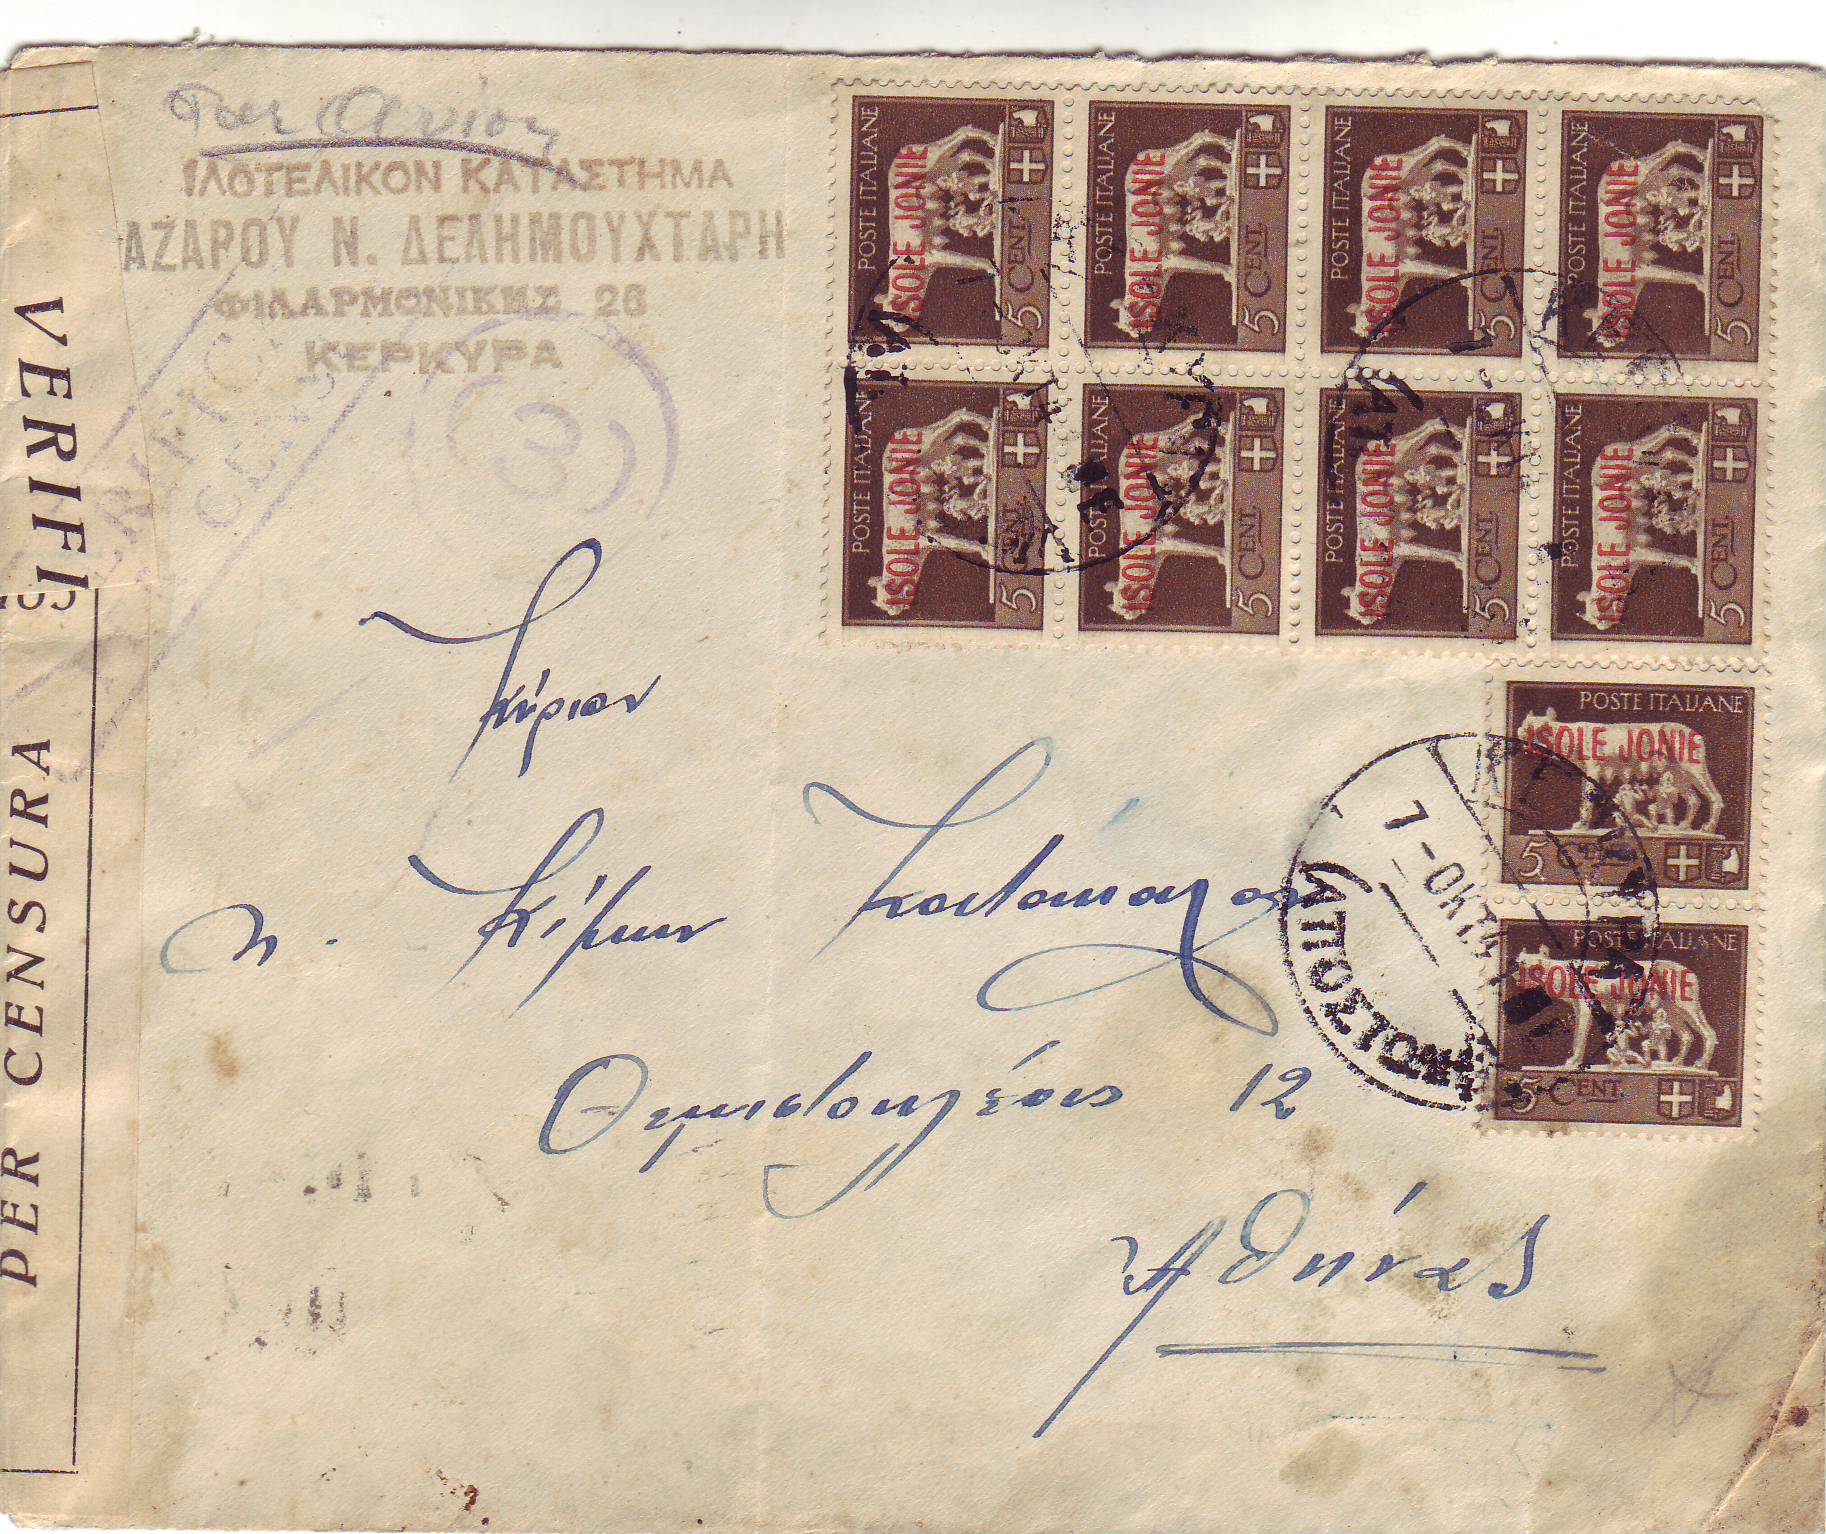 Par Avion
ΙΛΟΤΕΛΙΚΟΝ ΚΑΤΑΣΤΗΜΑ
ΑΖΑΡΟΥ Ν. ΔΕΛΗΜΟΥΧΤΑΡΗ
ΦΙΛΑΡΜΟΝΙΚΗΣ 26
ΚΕΡΚΥΡΑ
3
VERIFIC
PER CENSURA
POSTE ITALIANE ISOLE JONIE 5 CENT.
POSTE ITALIANE ISOLE JONIE 5 CENT.
POSTE ITALIANE ISOLE JONIE 5 CENT.
POSTE ITALIANE ISOLE JONIE 5 CENT.
POSTE ITALIANE ISOLE JONIE 5 CENT.
POSTE ITALIANE ISOLE JONIE 5 CENT.
POSTE ITALIANE ISOLE JONIE 5 CENT.
POSTE ITALIANE ISOLE JONIE 5 CENT.
POSTE ITALIANE
ISOLE JONIE
5 CENT.
POSTE ITALIANE
ISOLE JONIE
5 CENT.
7-ΟΚΤ
(ΑΠΟΣΤΟΛΗ
Κύριον
Θεμιστοκλέους 12
Αθήνας